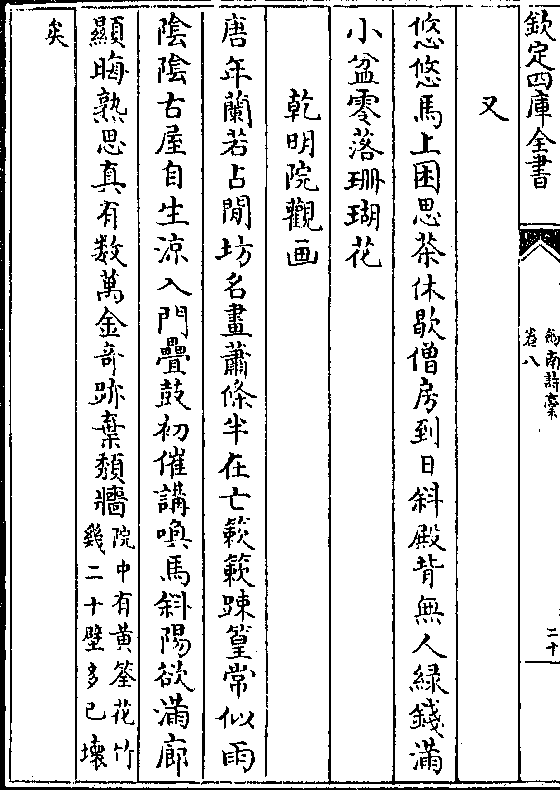 欽定四庫全書
劍南詩藁
卷八
二十
又
悠悠馬上困思茶休歇僧房到日斜殿背無人緑錢滿
小盆零落珊瑚花
乾明院觀画
唐年蘭若占閒坊名畫蕭條半在亡簌簌踈篁常似雨
陰陰古屋自生涼入門疊鼓初催講喚馬斜陽欲滿廊
顯晦熟思真有数萬金奇跡棄頽牆院中有黄筌花竹
幾二十壁多已壊
矣